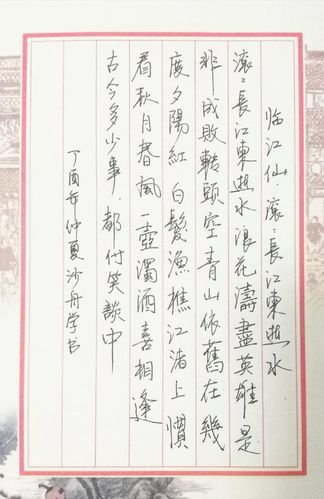 临江仙·滚〻長江東逝水
滚〻長江東逝水浪花濤盡英雄是
非成敗轉頭空青山依舊在幾
度夕陽紅白髮漁樵江渚上慣
看秋月春風一壺濁酒喜相逢
古今多少事·都付笑談中
丁酉年仲夏沙舟学书